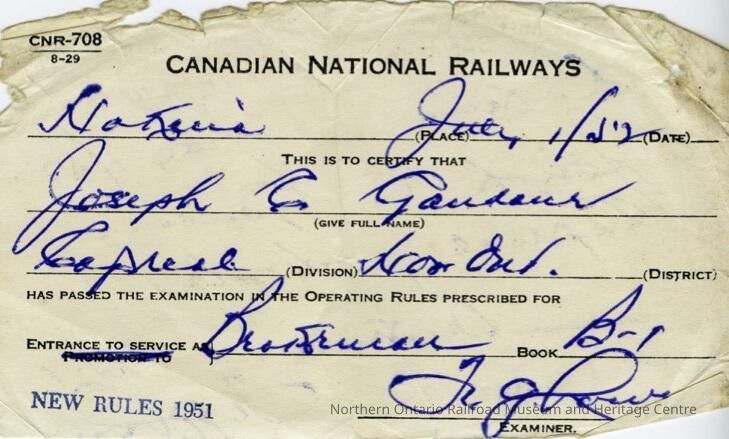 CNR-708
8-29
CANADIAN NATIONAL RAILWAYS
Nakina (PLACE) July 1/52 (DATE)
THIS IS TO CERTIFY THAT
Joseph G
(GIVE FULL NAME)
Capreol (DIVISION) Nor Ont. (DISTRICT)
HAS PASSED THE EXAMINATION IN THE OPERATING RULES PRESCRIBED FOR
ENTRANCE TO SERVICE AS Brakeman BOOK B-1
PROMOTION TO
NEW RULES 1951
Northern Ontario Railroad Museum and Heritage Centre
EXAMINER.